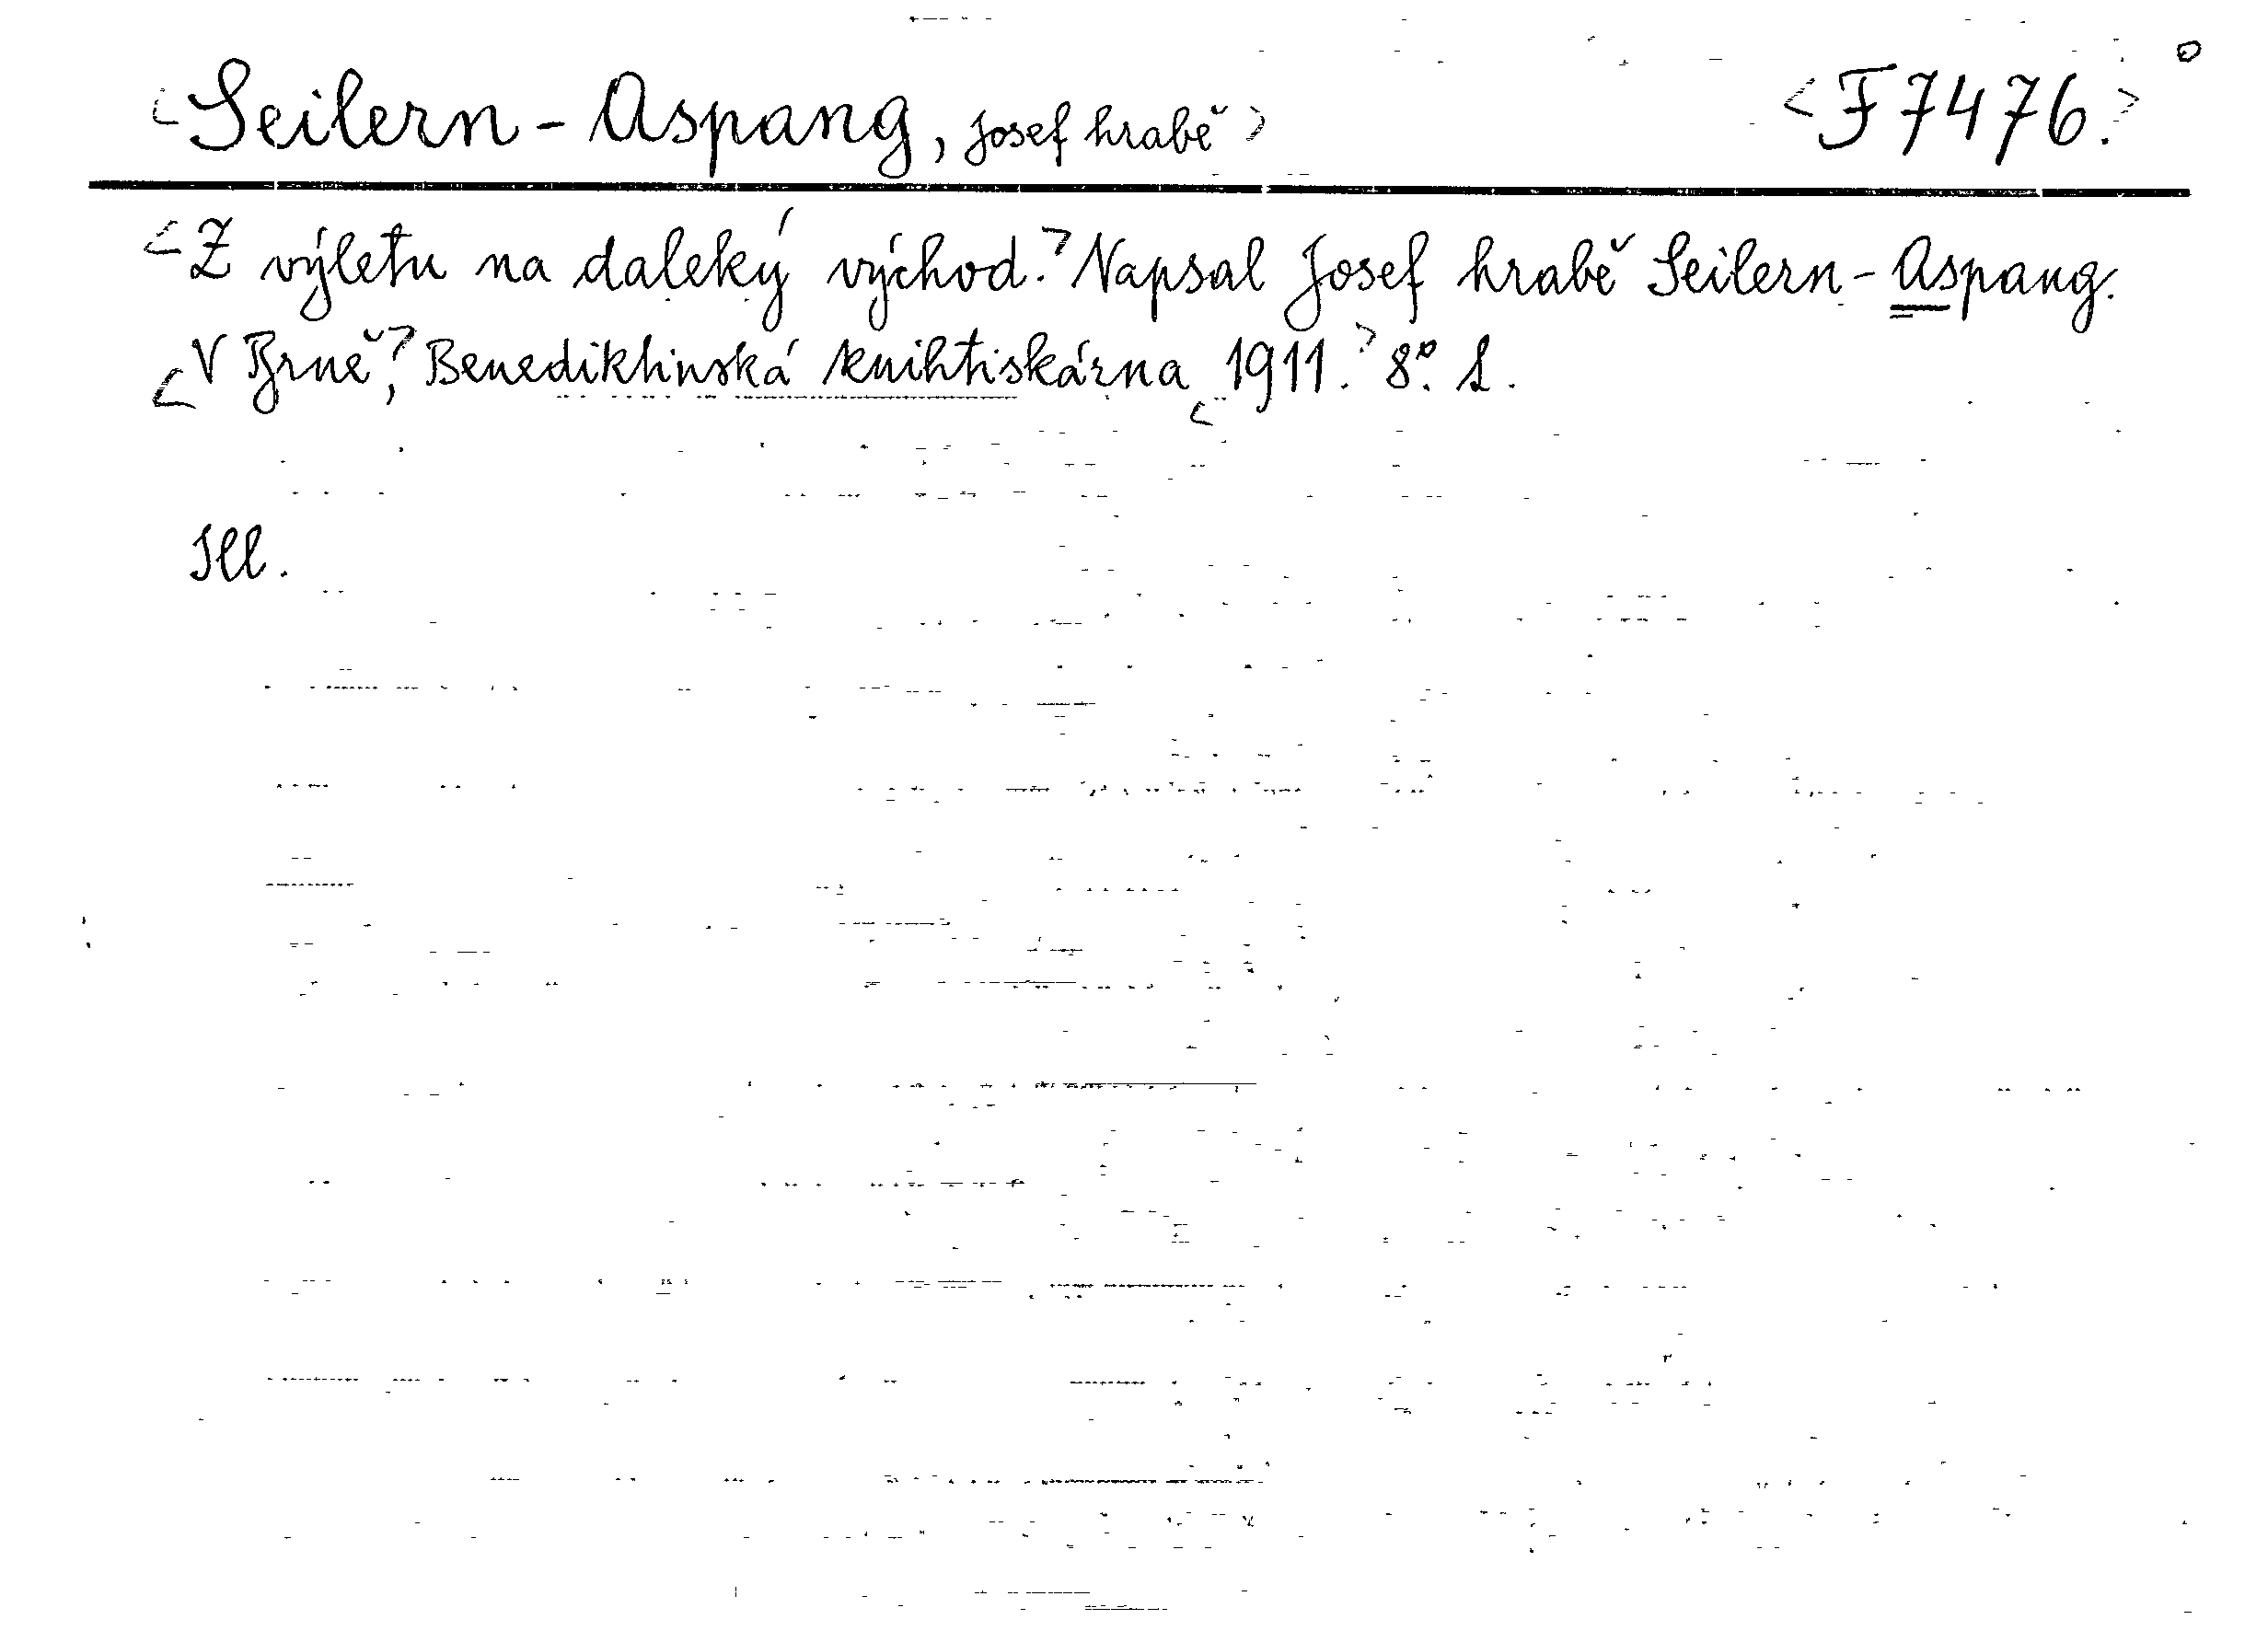 <Seilern-Aspang, Josef hrabě> <F 7476.>
<Z výletu na daleký východ.> Napsal Josef hrabě Seilern-Aspang.
<V Brně,> Benediktinská knihtiskárna <1911.> 8°. 1.
Ill.